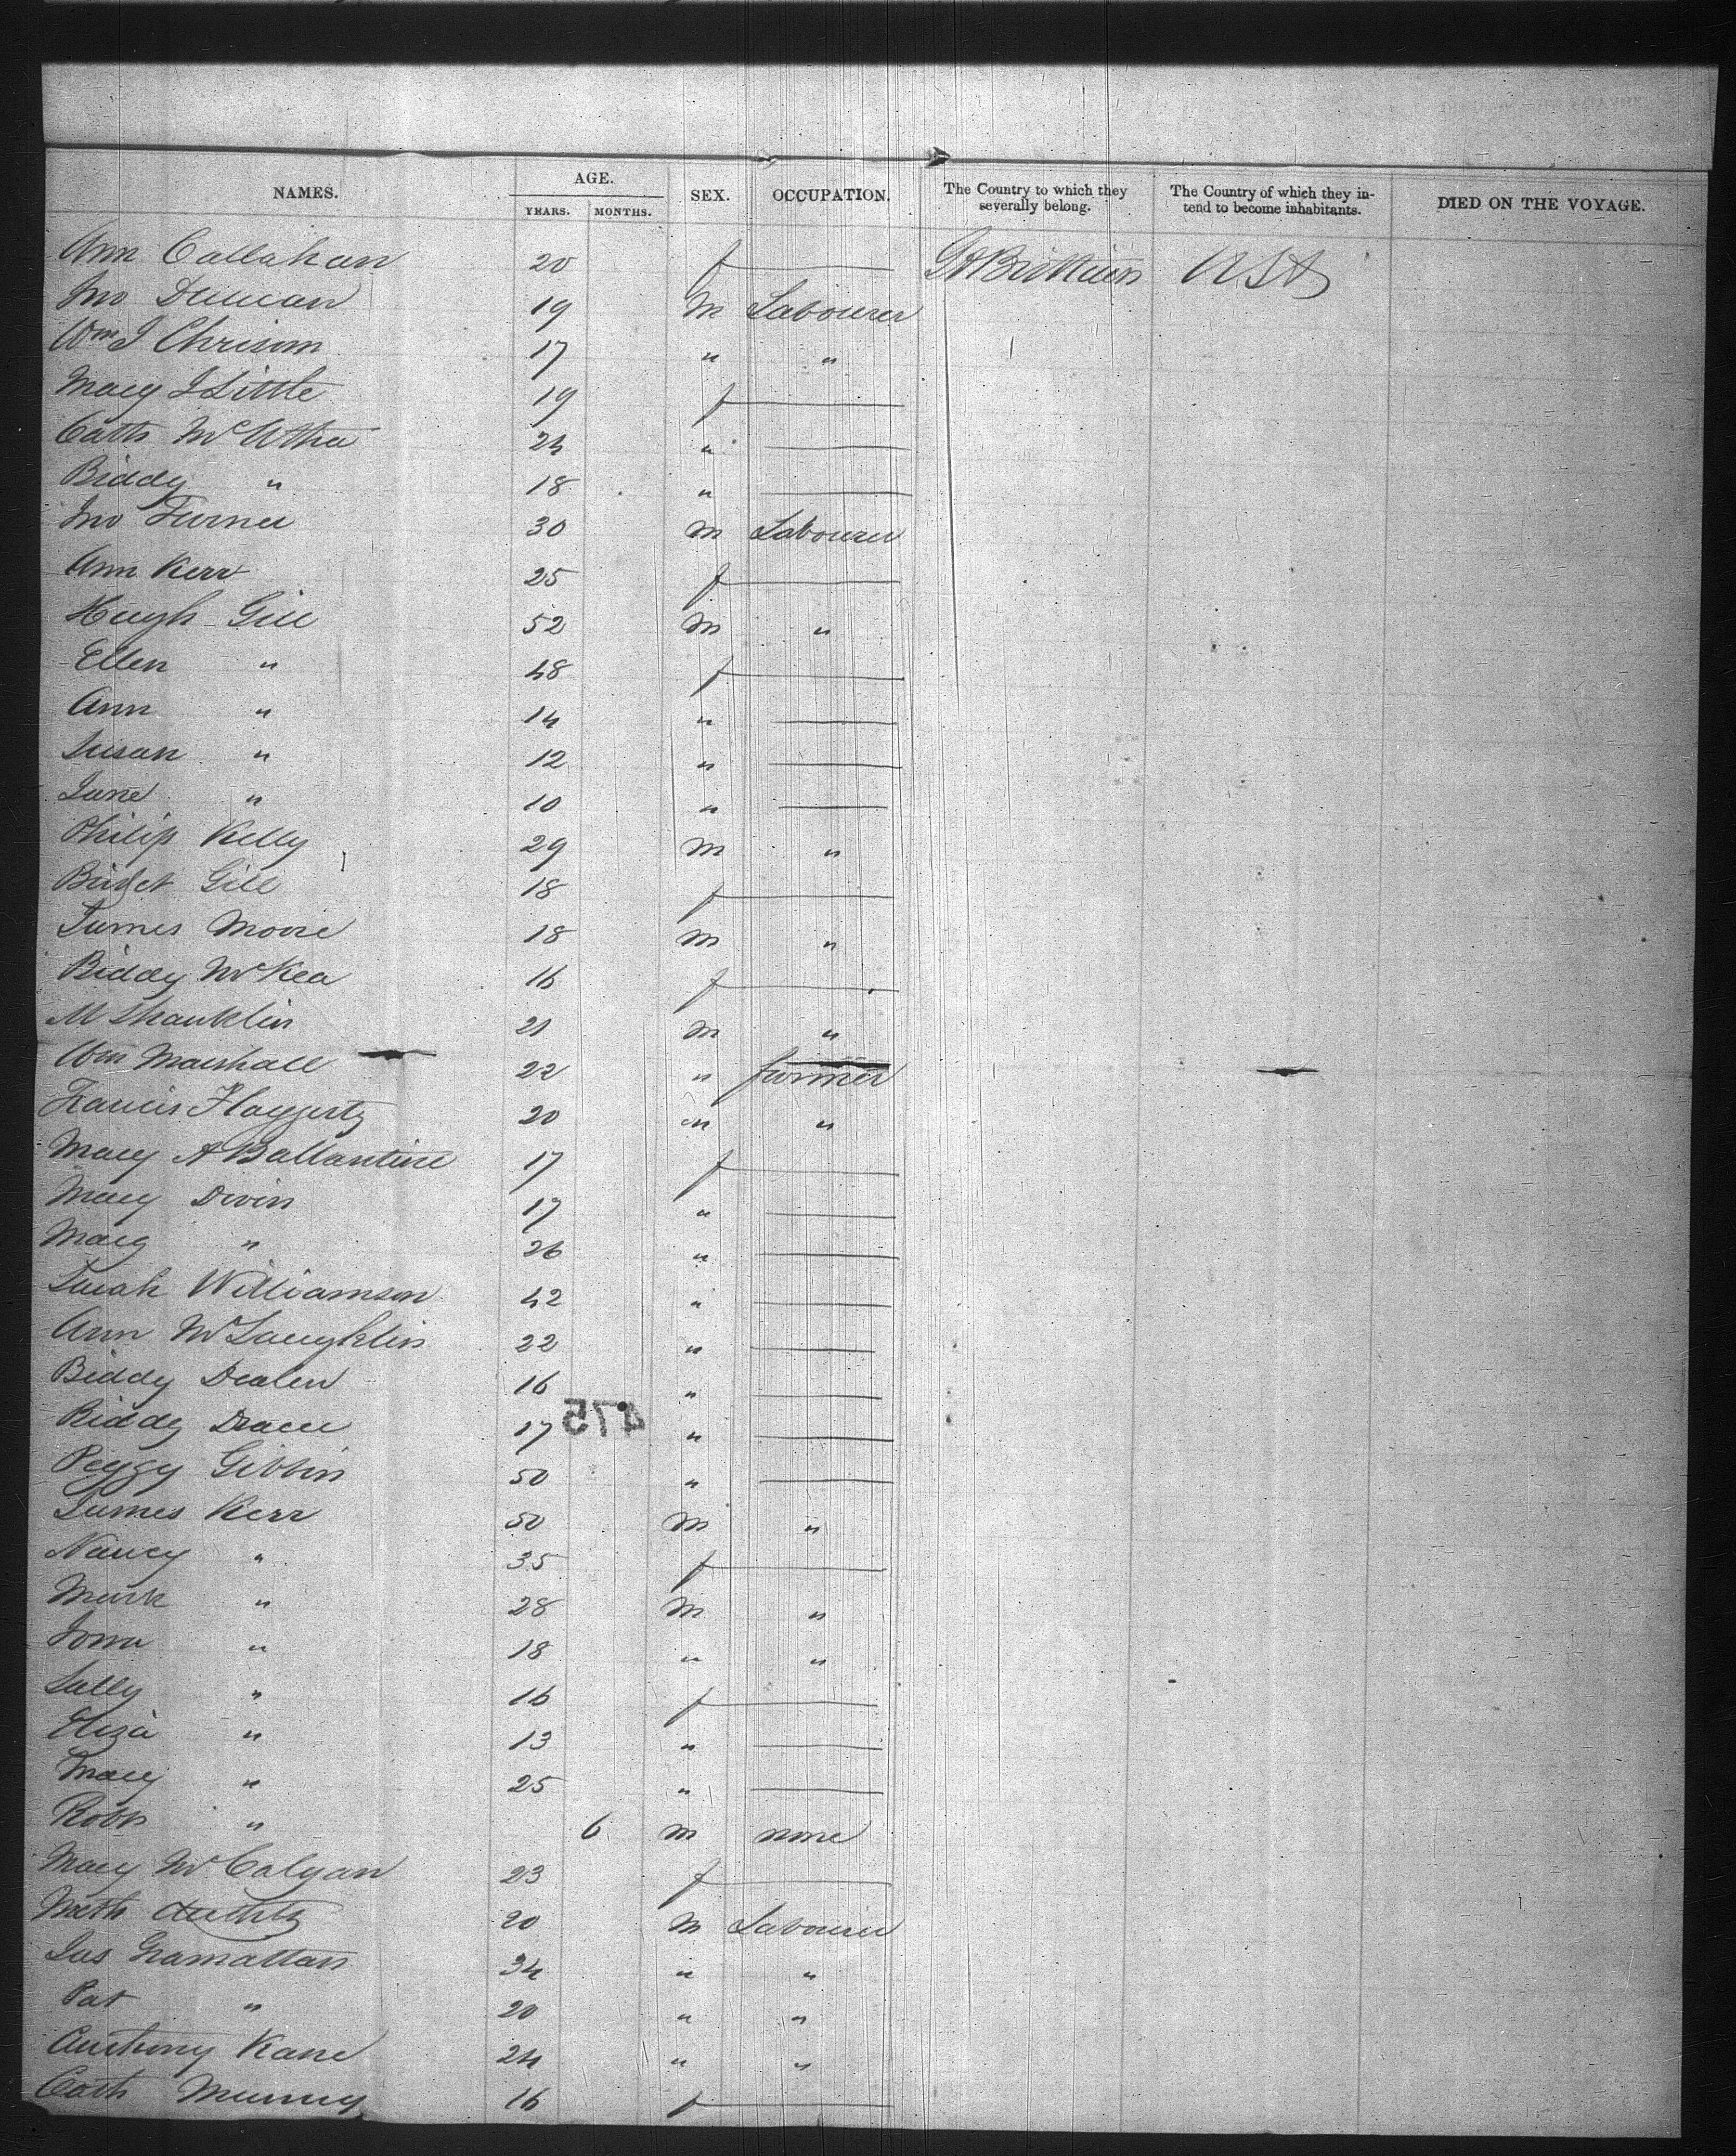 NAMES. AGE. SEX. OCCUPATION. The Country to which they severally belong. The Country of which they intend to become inhabitants. DIED ON THE VOYAGE.
YEARS. MONTHS.
Ann Callahan 20 f Gt Brittain USA
Jno Duncan 19 M Labourer
Wm J 17 " "
Mary J Little 19 f
Cath 24 "
Biddy " 18 "
Jno Turner 30 M Labourer
Ann Kerr 25 f
Hugh Gill 52 M "
Ellen " 48 f
Ann " 14 "
Susan " 12 "
Jane " 10 "
Philip Kelly 29 M "
Bridget Gill 18 f
James Moore 18 M "
Biddy McKea 16 f
M Shanklin 21 M "
Wm Marshall 22 " farmer
Francis Haggerty 20 " "
Mary A Ballantine 17 f
Mary Divin 17 "
Marg " 26 "
Sarah Williamson 42 "
Ann McLaughlin 22 "
Biddy 16 "
Biddy 17 "
475
Peggy Gibbin 50 "
James Kerr 50 M "
Nancy " 35 f
Mark " 28 M "
" 18 " "
Sally " 16 f
Eliza " 13 "
Mary " 25 "
Robt " 6 M none
Mary McColgan 23 f
20 M Labourer
Jas 34 " "
Pat " 20 " "
Anthony Kane 24 " "
Cath Murray 16 f